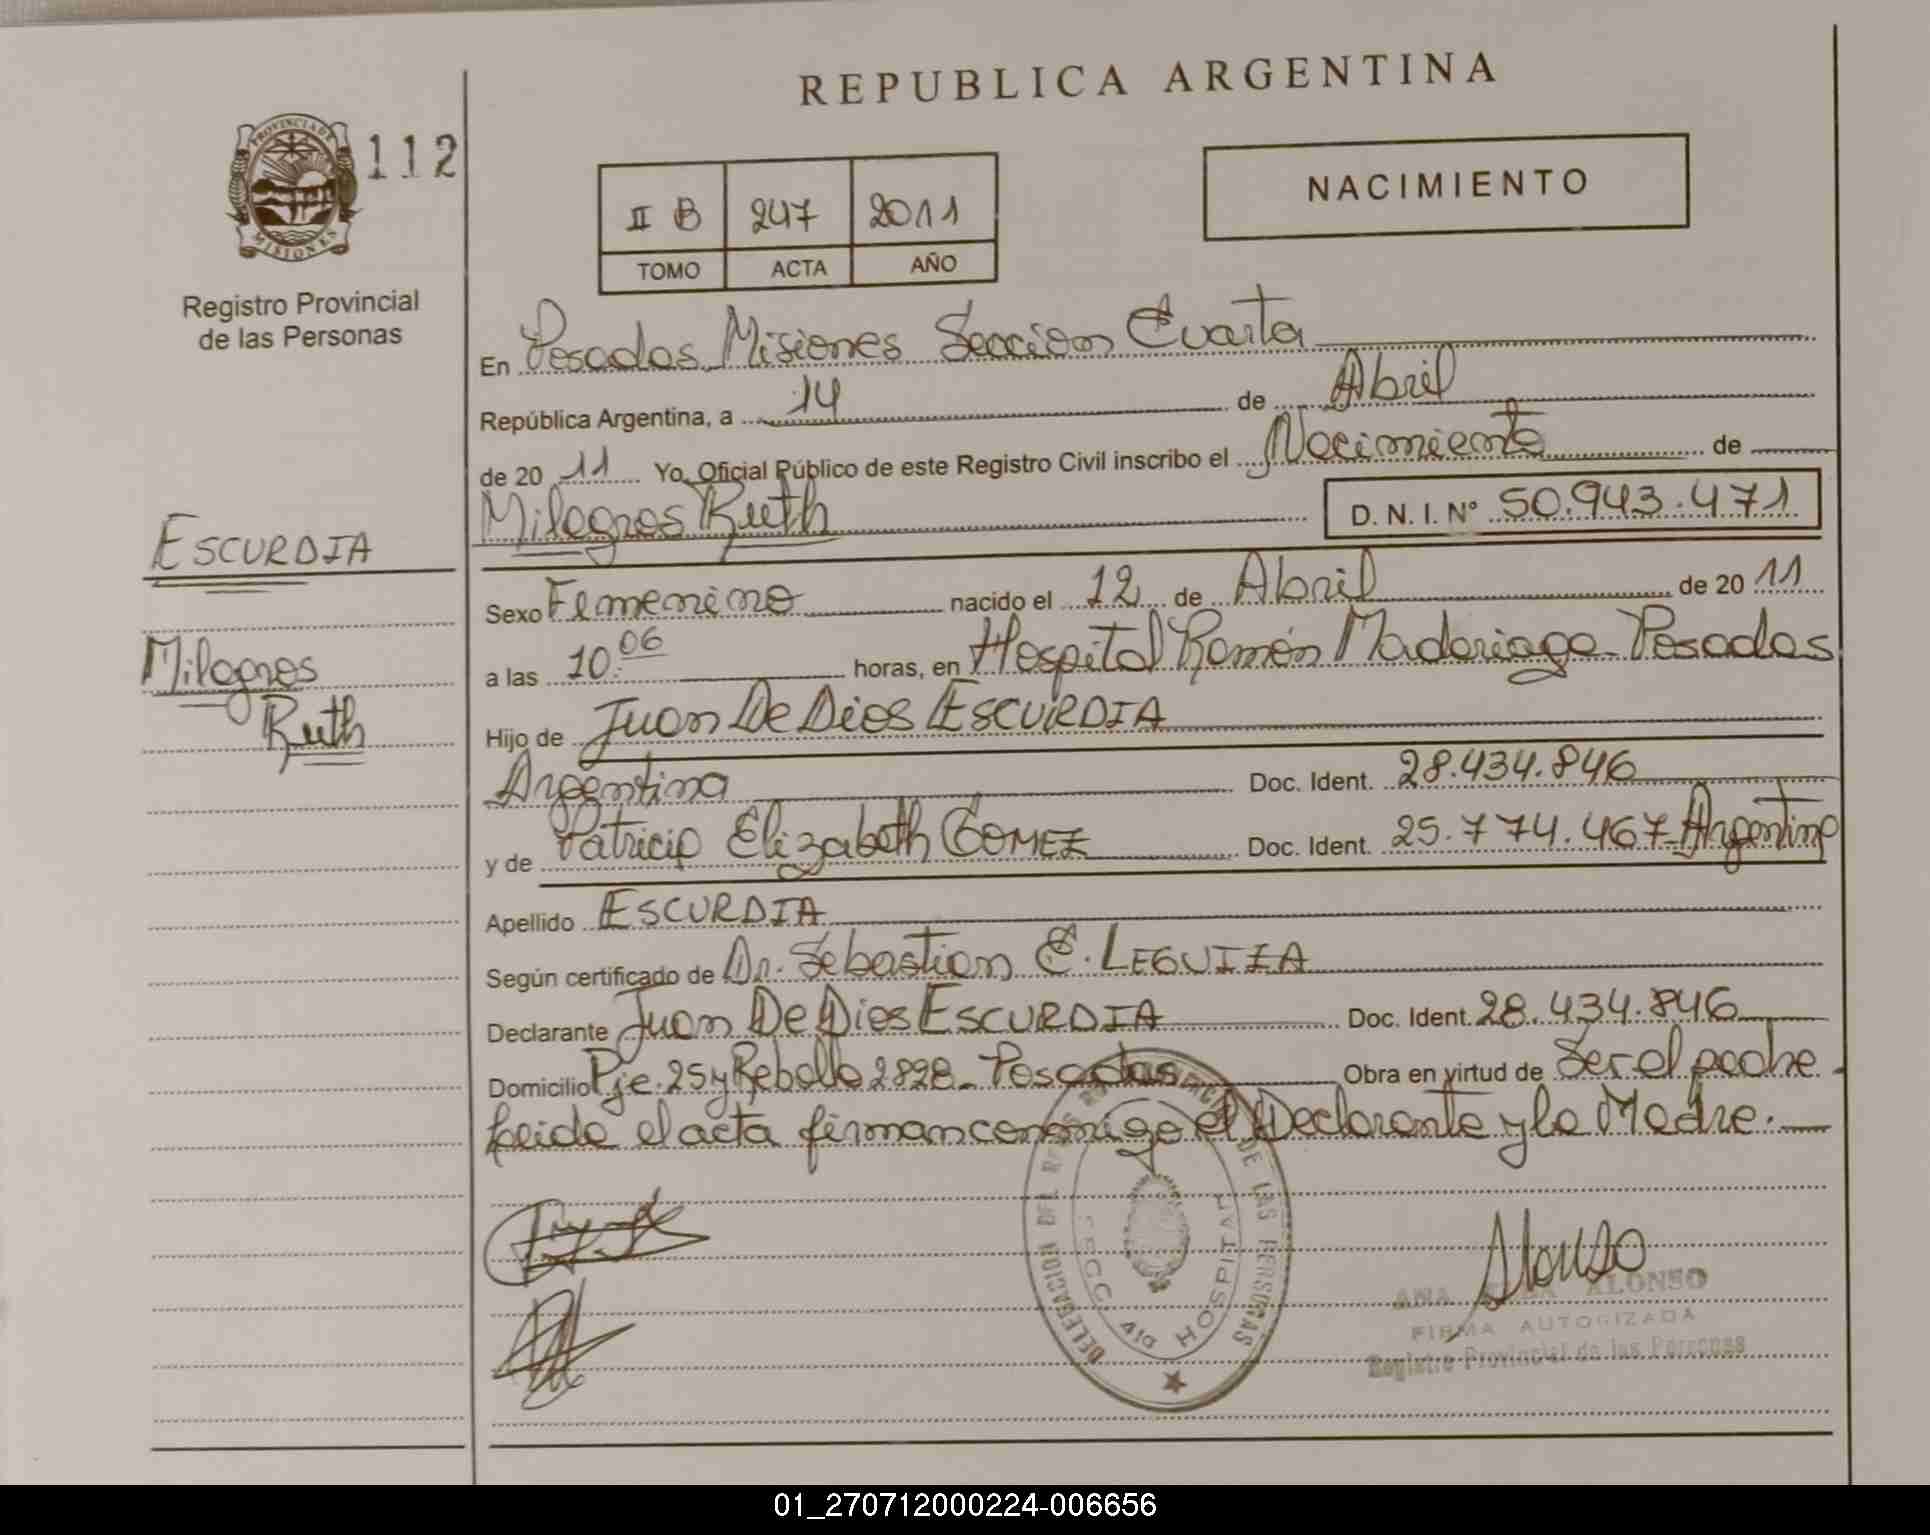 REPUBLICA ARGENTINA
PROVINCIA DE
MISIONES
112
Registro Provincial
de las Personas
II B 247 2011
TOMO ACTA AÑO
NACIMIENTO
En Posadas Misiones Sección Cuarta
República Argentina, a 14 de Abril
de 20 11 Yo, Oficial Público de este Registro Civil inscribo el Nacimiento de
Milagros Ruth D. N. I. Nº 50.943.471
ESCURDIA
Milagros
Ruth
Sexo Femenino nacido el 12 de Abril de 20 11
a las 10:06 horas, en Hospital Ramón Madariaga - Posadas
Hijo de Juan De Dios ESCURDIA
Argentina Doc. Ident. 28.434.846
y de Patricia Elizabeth GOMEZ Doc. Ident. 25.774.467 - Argentina
Apellido ESCURDIA
Según certificado de Dr. Sebastian E. LEGUIZA
Declarante Juan De Dios ESCURDIA Doc. Ident. 28.434.846
Domicilio Pje. 25 y Rebollo 2828 - Posadas Obra en virtud de Ser el padre
leida el acta firman conmigo el Declarante y la Madre.
DELEGACION DEL DE LAS PERSONAS
SECC. 4ta HOSPITAL
Alonso
ANA ALONSO
FIRMA AUTORIZADA
Registro Provincial de las Personas
01_270712000224-006656